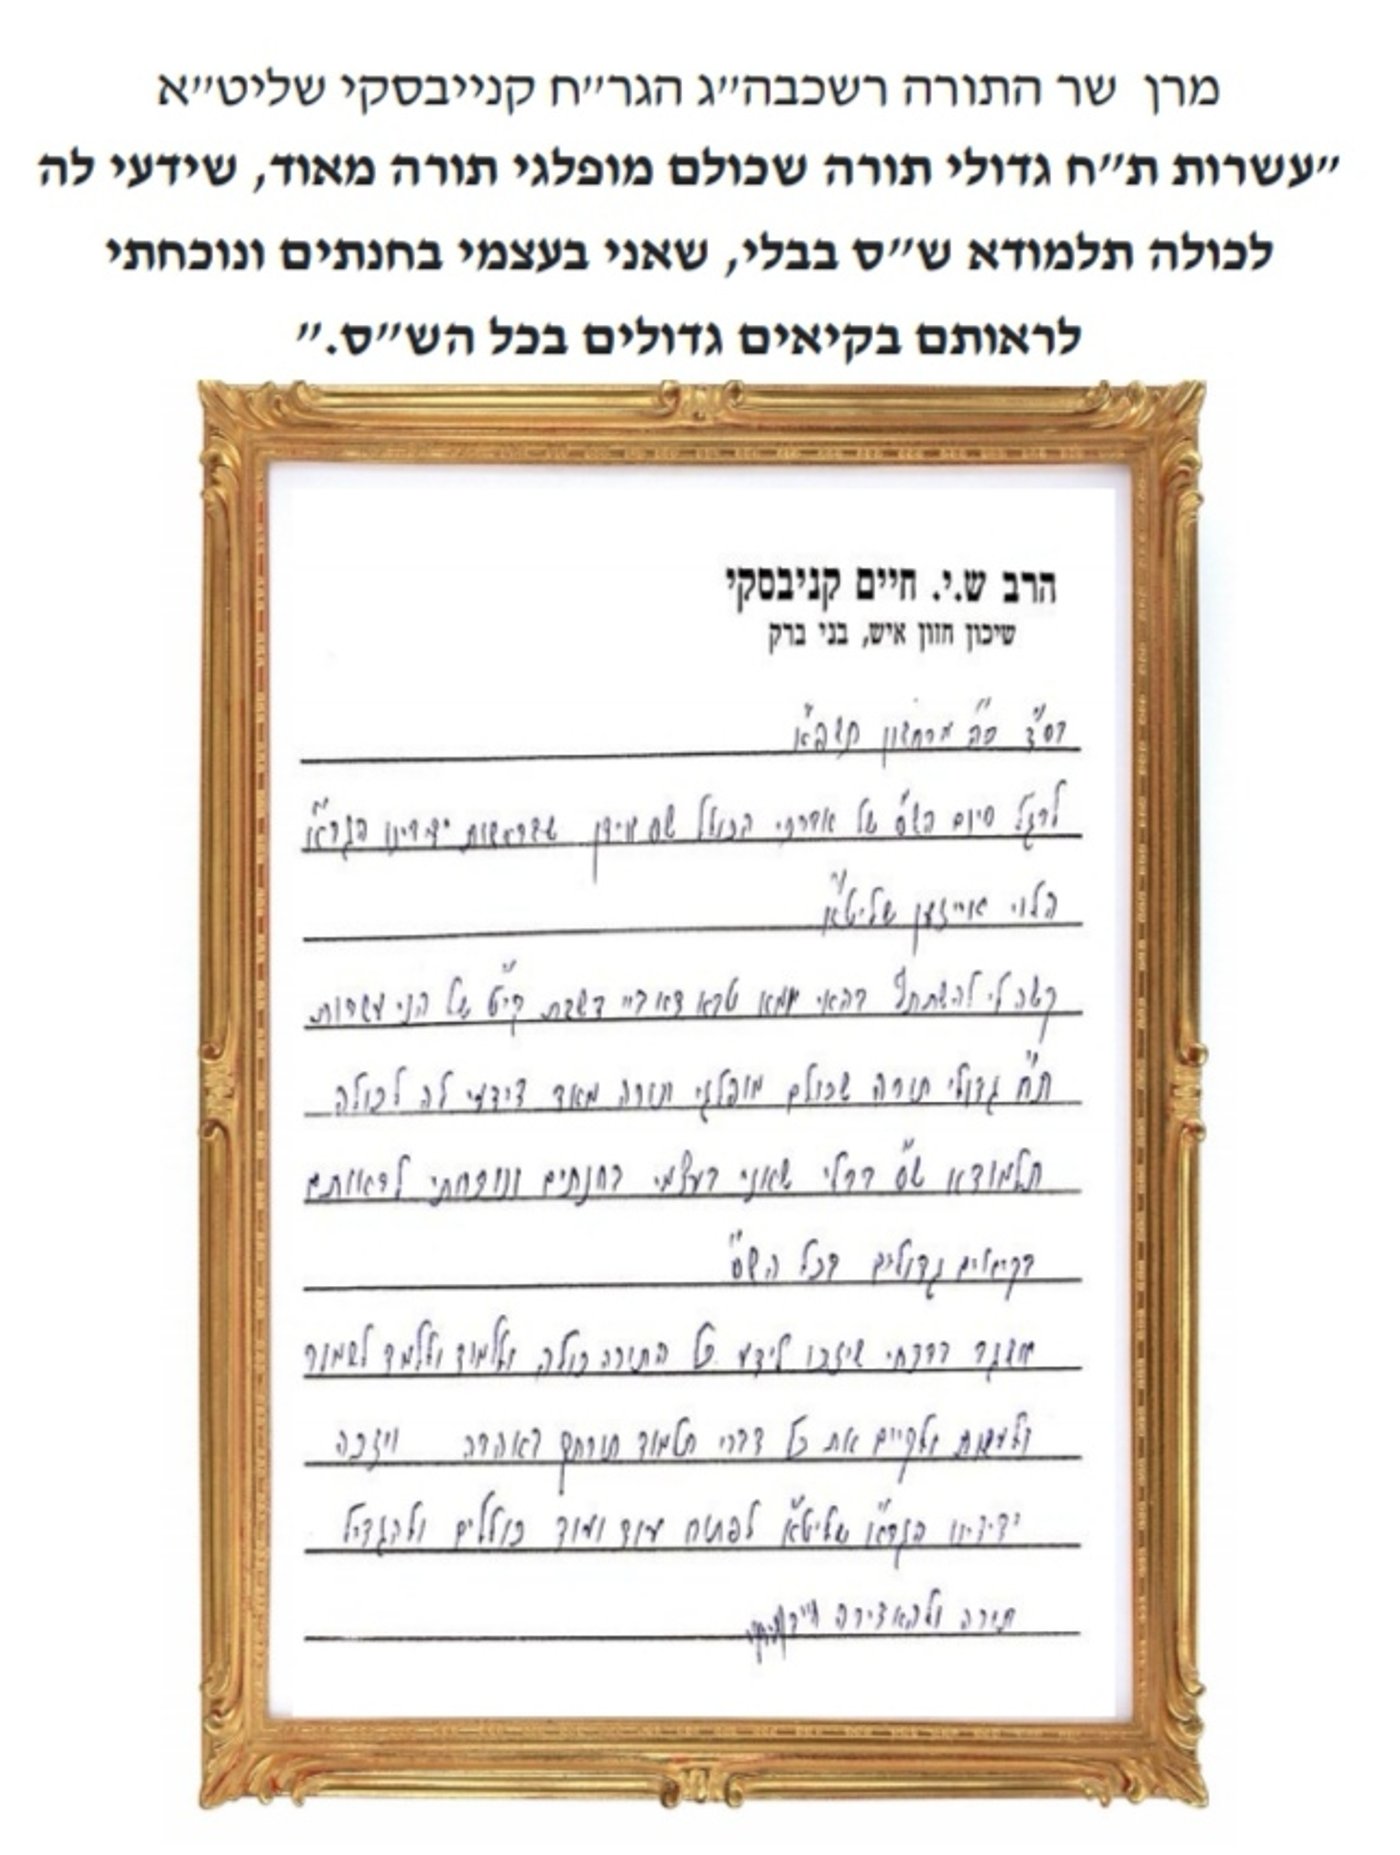 מרן שר התורה רשכבה״ג הגר״ח קנייבסקי שליט״א
״עשרות ת״ח גדולי תורה שכולם מופלגי תורה מאוד, שידעי לה
לכולה תלמודא ש״ס בבלי, שאני בעצמי בחנתים ונוכחתי
לראותם בקיאים גדולים בכל הש״ס.״
הרב ש.י. חיים קניבסקי
שיכון חזון איש, בני ברק
בס״ד מרחשון תשפ״א
לרגל סיום הש״ס של אברכי הכולל שבראשות ידידינו הגרא״ו
הלוי שליט״א
קשה לי להשתתף בהאי יומא טבא של הני עשרות
ת״ח גדולי תורה שכולם מופלגי תורה מאד דידעי לה לכולה
תלמודא ש״ס בבלי שאני בעצמי בחנתים ונוכחתי לראותם
בקיאים גדולים בכל הש״ס
ברכתי שיזכו לידע כל התורה כולה וללמוד וללמד לשמור
ולעשות ולקיים את כל דברי תלמוד תורתך באהבה ויזכה
ידידינו הגרא״ו שליט״א לפתוח עוד ועוד כוללים ולהגדיל
תורה ולהאדירה